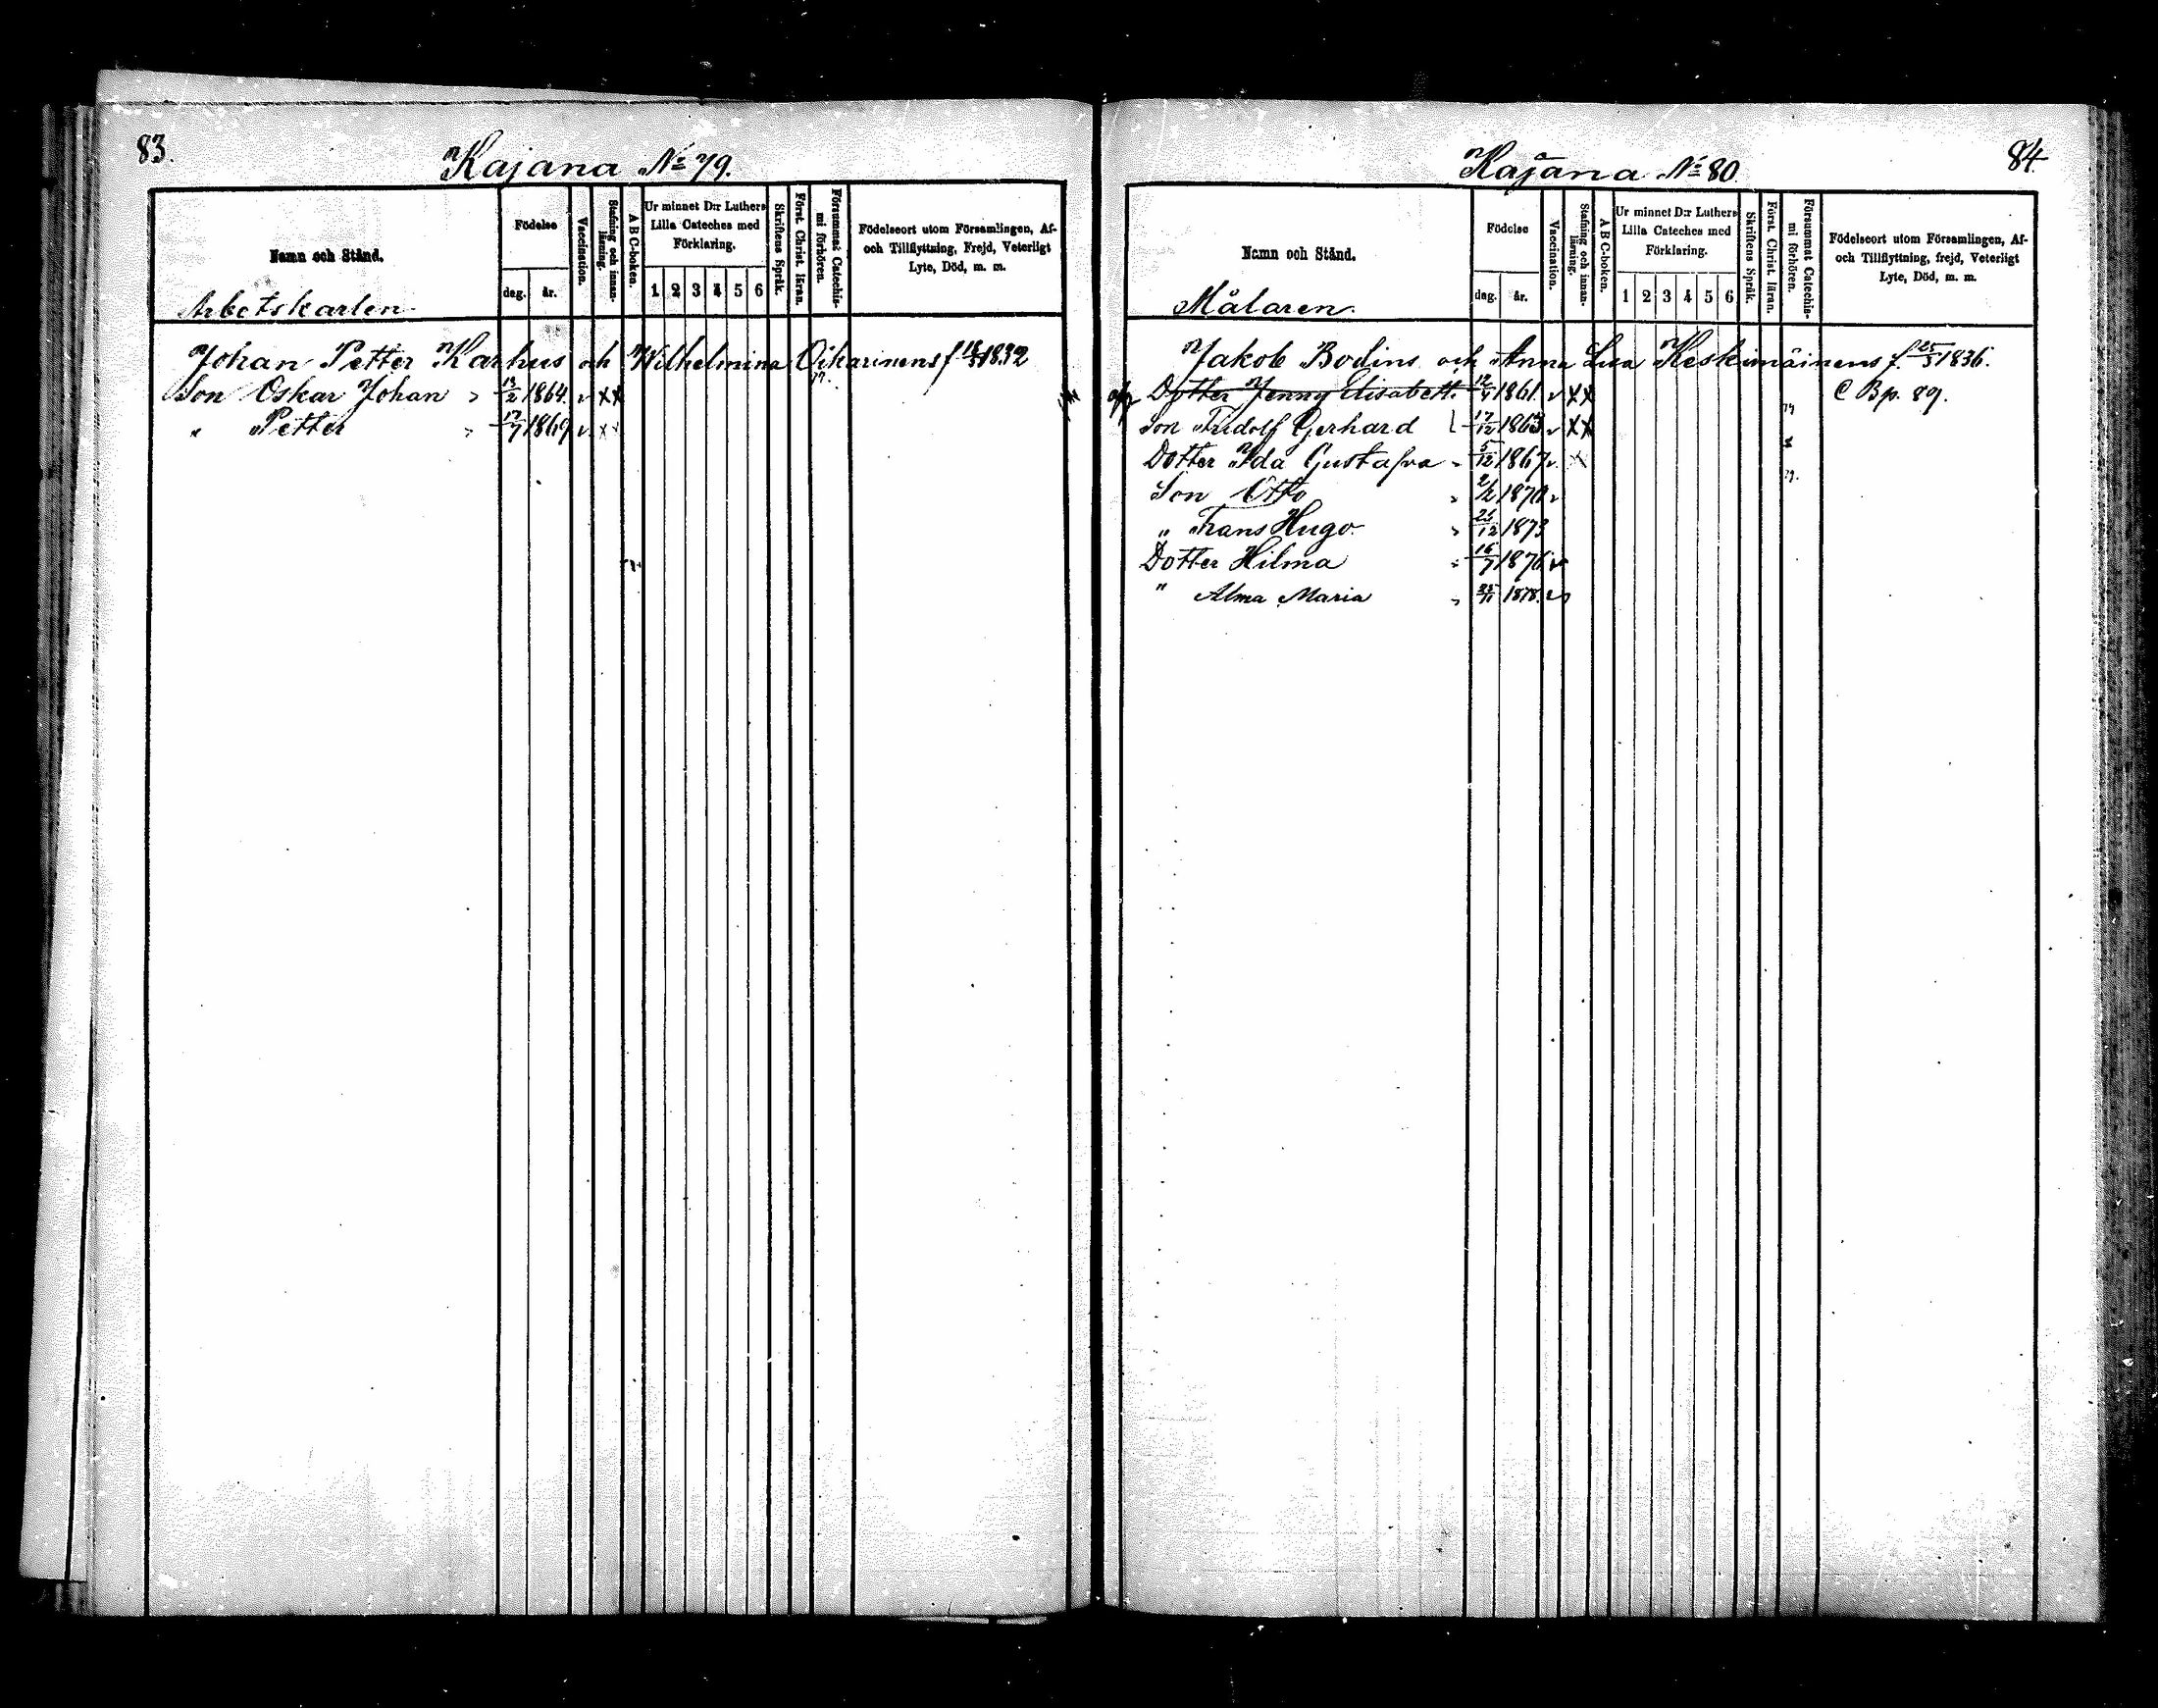 83.
Kajana № 79.
Namn och Stånd.
Födelse
dag.
år.
Vaccination.
Stafning och innan-
läsning.
A B C-boken.
Ur minnet D:r Luthers
Lilla Cateches med
Förklaring.
1 2 3 4 5 6
Skriftens Språk.
Först. Christ. läran.
Försummat Catechis-
mi förhören.
Födelseort utom Församlingen, Af-
och Tillflyttning, Frejd, Veterligt
Lyte, Död, m. m.
Arbetskarlen
Johan Petter Karhus och Wilhelmina Oikarinens f 1832
Son Oskar Johan " 13/2 1864. v XX
" Petter " 17/7 1869 v. XX
84.
Kajana № 80.
Namn och Stånd.
Födelse
dag.
år.
Vaccination.
Stafning och innan-
läsning.
A B C-boken.
Ur minnet D:r Luthers
Lilla Cateches med
Förklaring.
1 2 3 4 5 6
Skriftens Språk.
Först. Christ. läran.
Försummat Catechis-
mi förhören.
Födelseort utom Församlingen, Af-
och Tillflyttning, frejd, Veterligt
Lyte, Död, m. m.
Målaren.
Jakob Bodins och Anna Lisa Keskimäinens f. 25/3 1836.
Dotter Jenny Elisabeth 1861. v XX C B p. 89.
Son Fridolf Gerhard 17/12 1863 v XX
Dotter Ida Gustafva " 5/12 1867 v. X
Son Otto " 2/2 1870 v
" Frans Hugo " 1873
Dotter Hilma " 16/7 1876 v
" Alma Maria " 1878. v